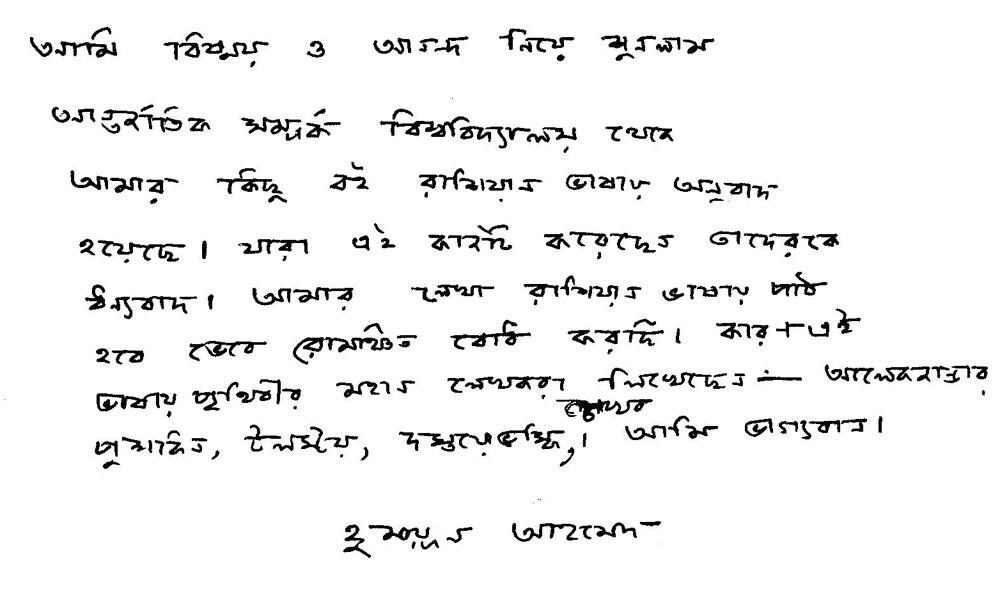 আমি বিস্ময় ও আনন্দ নিয়ে শুনলাম
আন্তর্জাতিক সম্পর্ক বিশ্ববিদ্যালয় থেকে
আমার কিছু বই রাশিয়ান ভাষায় অনুবাদ
হয়েছে। যারা এই কাজটি করেছেন তাদেরকে
ধন্যবাদ। আমার লেখা রাশিয়ান ভাষায় পাঠ
হবে ভেবে রোমাঞ্চিত বোধ করছি। কারণ এই
ভাষায় পৃথিবীর মহান লেখকরা লিখেছেন — আলেকজান্ডার
পুশকিন, টলস্টয়, দস্তয়েভস্কি, । আমি ভাগ্যবান।
হুমায়ূন আহমেদ